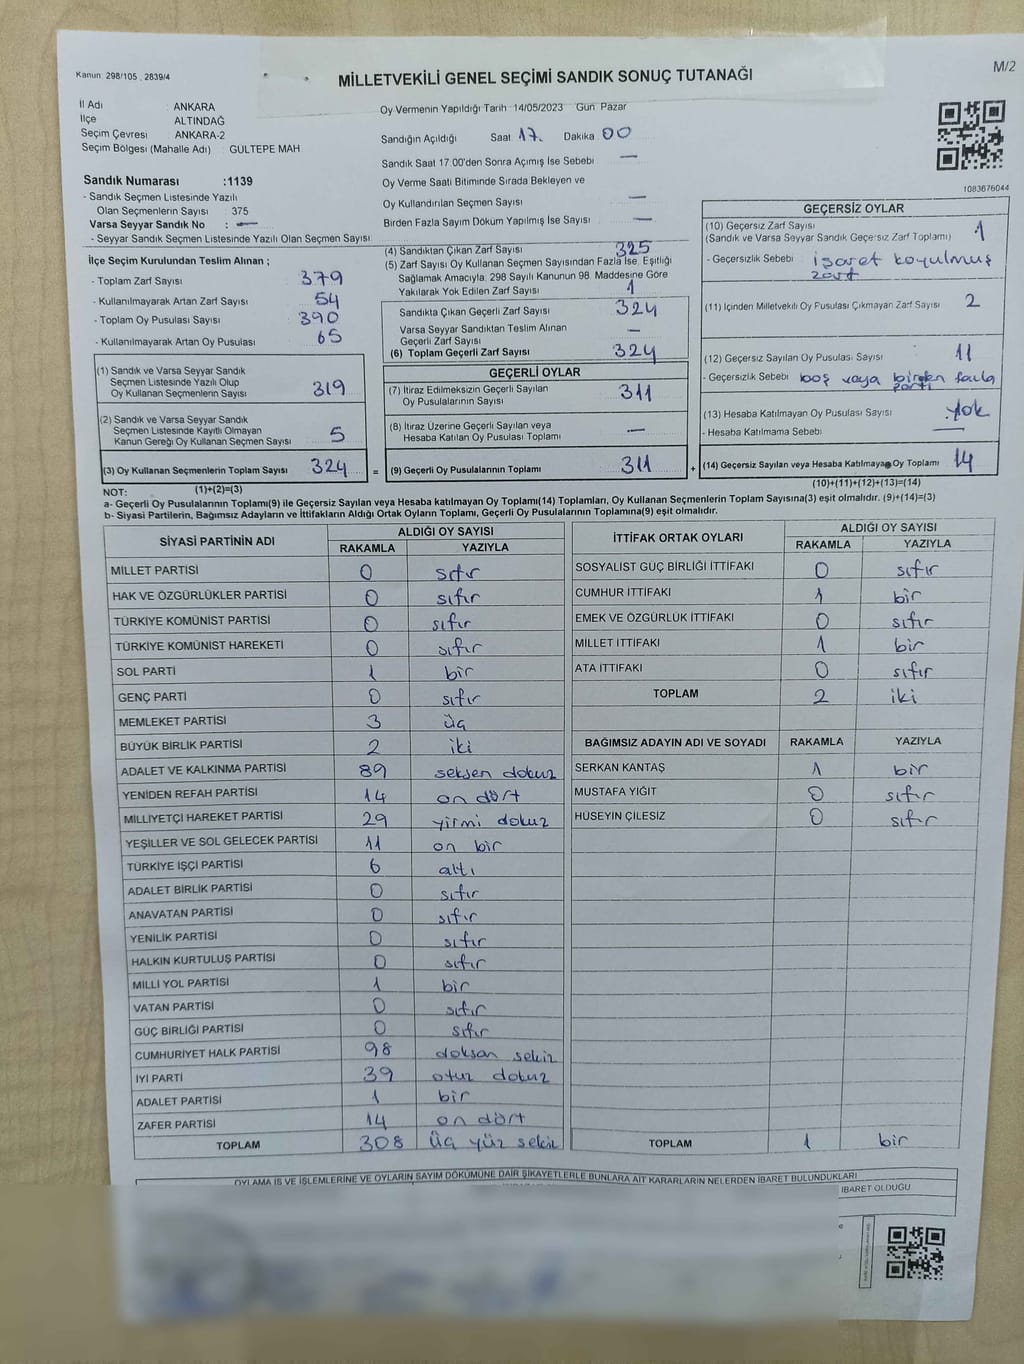 Kanun: 298/105 , 2839/4
MİLLETVEKİLİ GENEL SEÇİMİ SANDIK SONUÇ TUTANAĞI
M/2
İl Adı : ANKARA
İlçe : ALTINDAĞ
Seçim Çevresi : ANKARA-2
Seçim Bölgesi (Mahalle Adı) : GÜLTEPE MAH
Sandık Numarası :1139
- Sandık Seçmen Listesinde Yazılı
Olan Seçmenlerin Sayısı : 375
Varsa Seyyar Sandık No : —
- Seyyar Sandık Seçmen Listesinde Yazılı Olan Seçmen Sayısı
Oy Vermenin Yapıldığı Tarih 14/05/2023 Gün Pazar
Sandığın Açıldığı Saat 17 Dakika 00
Sandık Saat 17 00'den Sonra Açımış İse Sebebi —
Oy Verme Saati Bitiminde Sırada Bekleyen ve
Oy Kullandırılan Seçmen Sayısı —
Birden Fazla Sayım Döküm Yapılmış İse Sayısı —
1083676044
İlçe Seçim Kurulundan Teslim Alınan ;
- Toplam Zarf Sayısı 379
- Kullanılmayarak Artan Zarf Sayısı 54
- Toplam Oy Pusulası Sayısı 390
- Kullanılmayarak Artan Oy Pusulası 65
(1) Sandık ve Varsa Seyyar Sandık
Seçmen Listesinde Yazılı Olup
Oy Kullanan Seçmenlerin Sayısı 319
(2) Sandık ve Varsa Seyyar Sandık
Seçmen Listesinde Kayıtlı Olmayan
Kanun Gereği Oy Kullanan Seçmen Sayısı 5
(3) Oy Kullanan Seçmenlerin Toplam Sayısı 324 =
(1)+(2)=(3)
(4) Sandıktan Çıkan Zarf Sayısı 325
(5) Zarf Sayısı Oy Kullanan Seçmen Sayısından Fazla İse, Eşitliği
Sağlamak Amacıyla, 298 Sayılı Kanunun 98. Maddesine Göre
Yakılarak Yok Edilen Zarf Sayısı 1
Sandıkta Çıkan Geçerli Zarf Sayısı 324
Varsa Seyyar Sandıktan Teslim Alınan
Geçerli Zarf Sayısı —
(6) Toplam Geçerli Zarf Sayısı 324
GEÇERLİ OYLAR
(7) İtiraz Edilmeksizin Geçerli Sayılan
Oy Pusulalarının Sayısı 311
(8) İtiraz Üzerine Geçerli Sayılan veya
Hesaba Katılan Oy Pusulası Toplamı —
(9) Geçerli Oy Pusulalarının Toplamı 311 +
GEÇERSİZ OYLAR
(10) Geçersiz Zarf Sayısı 1
(Sandık ve Varsa Seyyar Sandık Geçersiz Zarf Toplamı)
- Geçersizlik Sebebi işaret koyulmuş
zarf
(11) İçinden Milletvekili Oy Pusulası Çıkmayan Zarf Sayısı 2
(12) Geçersiz Sayılan Oy Pusulası Sayısı 11
- Geçersizlik Sebebi boş veya birden fazla
parti
(13) Hesaba Katılmayan Oy Pusulası Sayısı yok
- Hesaba Katılmama Sebebi —
(14) Geçersiz Sayılan veya Hesaba Katılmayan Oy Toplamı 14
(10)+(11)+(12)+(13)=(14)
NOT:
a- Geçerli Oy Pusulalarının Toplamı(9) ile Geçersiz Sayılan veya Hesaba katılmayan Oy Toplamı(14) Toplamları, Oy Kullanan Seçmenlerin Toplam Sayısına(3) eşit olmalıdır. (9)+(14)=(3)
b- Siyasi Partilerin, Bağımsız Adayların ve İttifakların Aldığı Ortak Oyların Toplamı, Geçerli Oy Pusulalarının Toplamına(9) eşit olmalıdır.
SİYASİ PARTİNİN ADI ALDIĞI OY SAYISI
RAKAMLA YAZIYLA
MİLLET PARTİSİ 0 sıfır
HAK VE ÖZGÜRLÜKLER PARTİSİ 0 sıfır
TÜRKİYE KOMÜNİST PARTİSİ 0 sıfır
TÜRKİYE KOMÜNİST HAREKETİ 0 sıfır
SOL PARTİ 1 bir
GENÇ PARTİ 0 sıfır
MEMLEKET PARTİSİ 3 üç
BÜYÜK BİRLİK PARTİSİ 2 iki
ADALET VE KALKINMA PARTİSİ 89 seksen dokuz
YENİDEN REFAH PARTİSİ 14 on dört
MİLLİYETÇİ HAREKET PARTİSİ 29 yirmi dokuz
YEŞİLLER VE SOL GELECEK PARTİSİ 11 on bir
TÜRKİYE İŞÇİ PARTİSİ 6 altı
ADALET BİRLİK PARTİSİ 0 sıfır
ANAVATAN PARTİSİ 0 sıfır
YENİLİK PARTİSİ 0 sıfır
HALKIN KURTULUŞ PARTİSİ 0 sıfır
MİLLİ YOL PARTİSİ 1 bir
VATAN PARTİSİ 0 sıfır
GÜÇ BİRLİĞİ PARTİSİ 0 sıfır
CUMHURİYET HALK PARTİSİ 98 doksan sekiz
İYİ PARTİ 39 otuz dokuz
ADALET PARTİSİ 1 bir
ZAFER PARTİSİ 14 on dört
TOPLAM 308 üç yüz sekiz
İTTİFAK ORTAK OYLARI ALDIĞI OY SAYISI
RAKAMLA YAZIYLA
SOSYALİST GÜÇ BİRLİĞİ İTTİFAKI 0 sıfır
CUMHUR İTTİFAKI 1 bir
EMEK VE ÖZGÜRLÜK İTTİFAKI 0 sıfır
MİLLET İTTİFAKI 1 bir
ATA İTTİFAKI 0 sıfır
TOPLAM 2 iki
BAĞIMSIZ ADAYIN ADI VE SOYADI RAKAMLA YAZIYLA
SERKAN KANTAŞ 1 bir
MUSTAFA YİĞİT 0 sıfır
HÜSEYİN ÇİLESİZ 0 sıfır
TOPLAM 1 bir
OYLAMA İŞ VE İŞLEMLERİNE VE OYLARIN SAYIM DÖKÜMÜNE DAİR ŞİKAYETLERLE BUNLARA AİT KARARLARIN NELERDEN İBARET BULUNDUKLARI
İBARET OLDUĞU